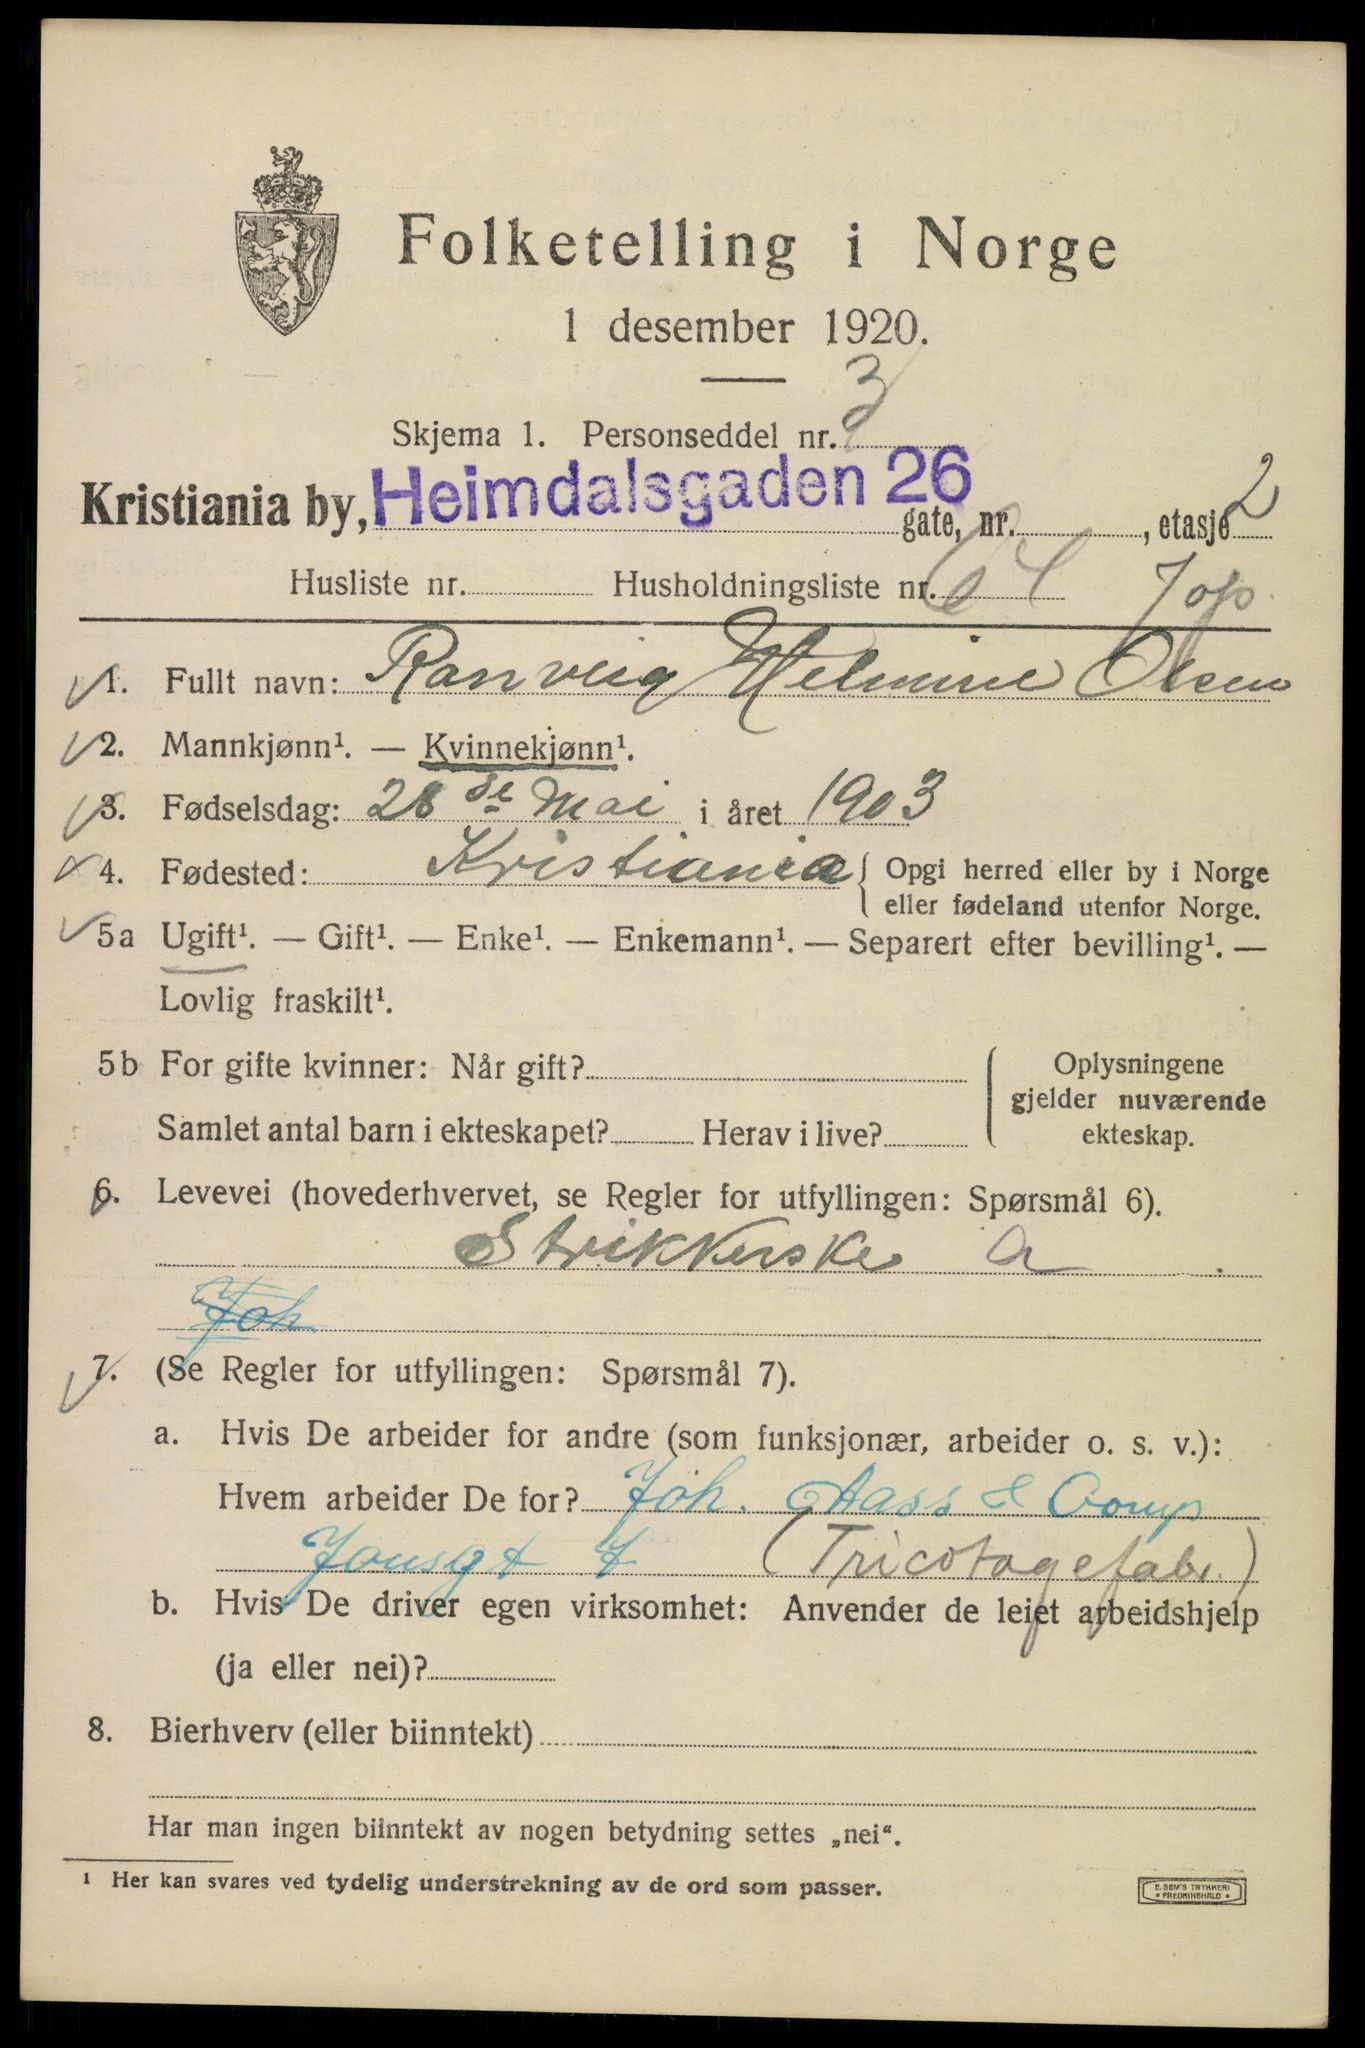 Folketelling i Norge
1 desember 1920.
Skjema 1. Personseddel nr. 3
Kristiania by, Heimdalsgaden 26 gate, nr. , etasje 2
Husliste nr. Husholdningsliste nr. 64
1. Fullt navn: Ranveig Helmine Olsen
2. Mannkjønn¹. — Kvinnekjønn¹.
3. Fødselsdag: 28 de Mai i året 1903
4. Fødested: Kristiania { Opgi herred eller by i Norge
eller fødeland utenfor Norge.
5a Ugift¹. — Gift¹. — Enke¹. — Enkemann¹. — Separert efter bevilling¹. —
Lovlig fraskilt¹.
5b For gifte kvinner: Når gift? Oplysningene
gjelder nuværende
Samlet antal barn i ekteskapet? Herav i live? ekteskap.
6. Levevei (hovederhvervet, se Regler for utfyllingen: Spørsmål 6).
Strikkerske a
Joh
7. (Se Regler for utfyllingen: Spørsmål 7).
a. Hvis De arbeider for andre (som funksjonær, arbeider o. s. v.):
Hvem arbeider De for? Joh. Aass & Comp
(Tricotagefabr.)
b. Hvis De driver egen virksomhet: Anvender de leiet arbeidshjelp
(ja eller nei)?
8. Bierhverv (eller biinntekt)
Har man ingen biinntekt av nogen betydning settes „nei“.
¹ Her kan svares ved tydelig understrekning av de ord som passer.
E. SEM'S TRYKKERI
• FREDRIKSHALD •